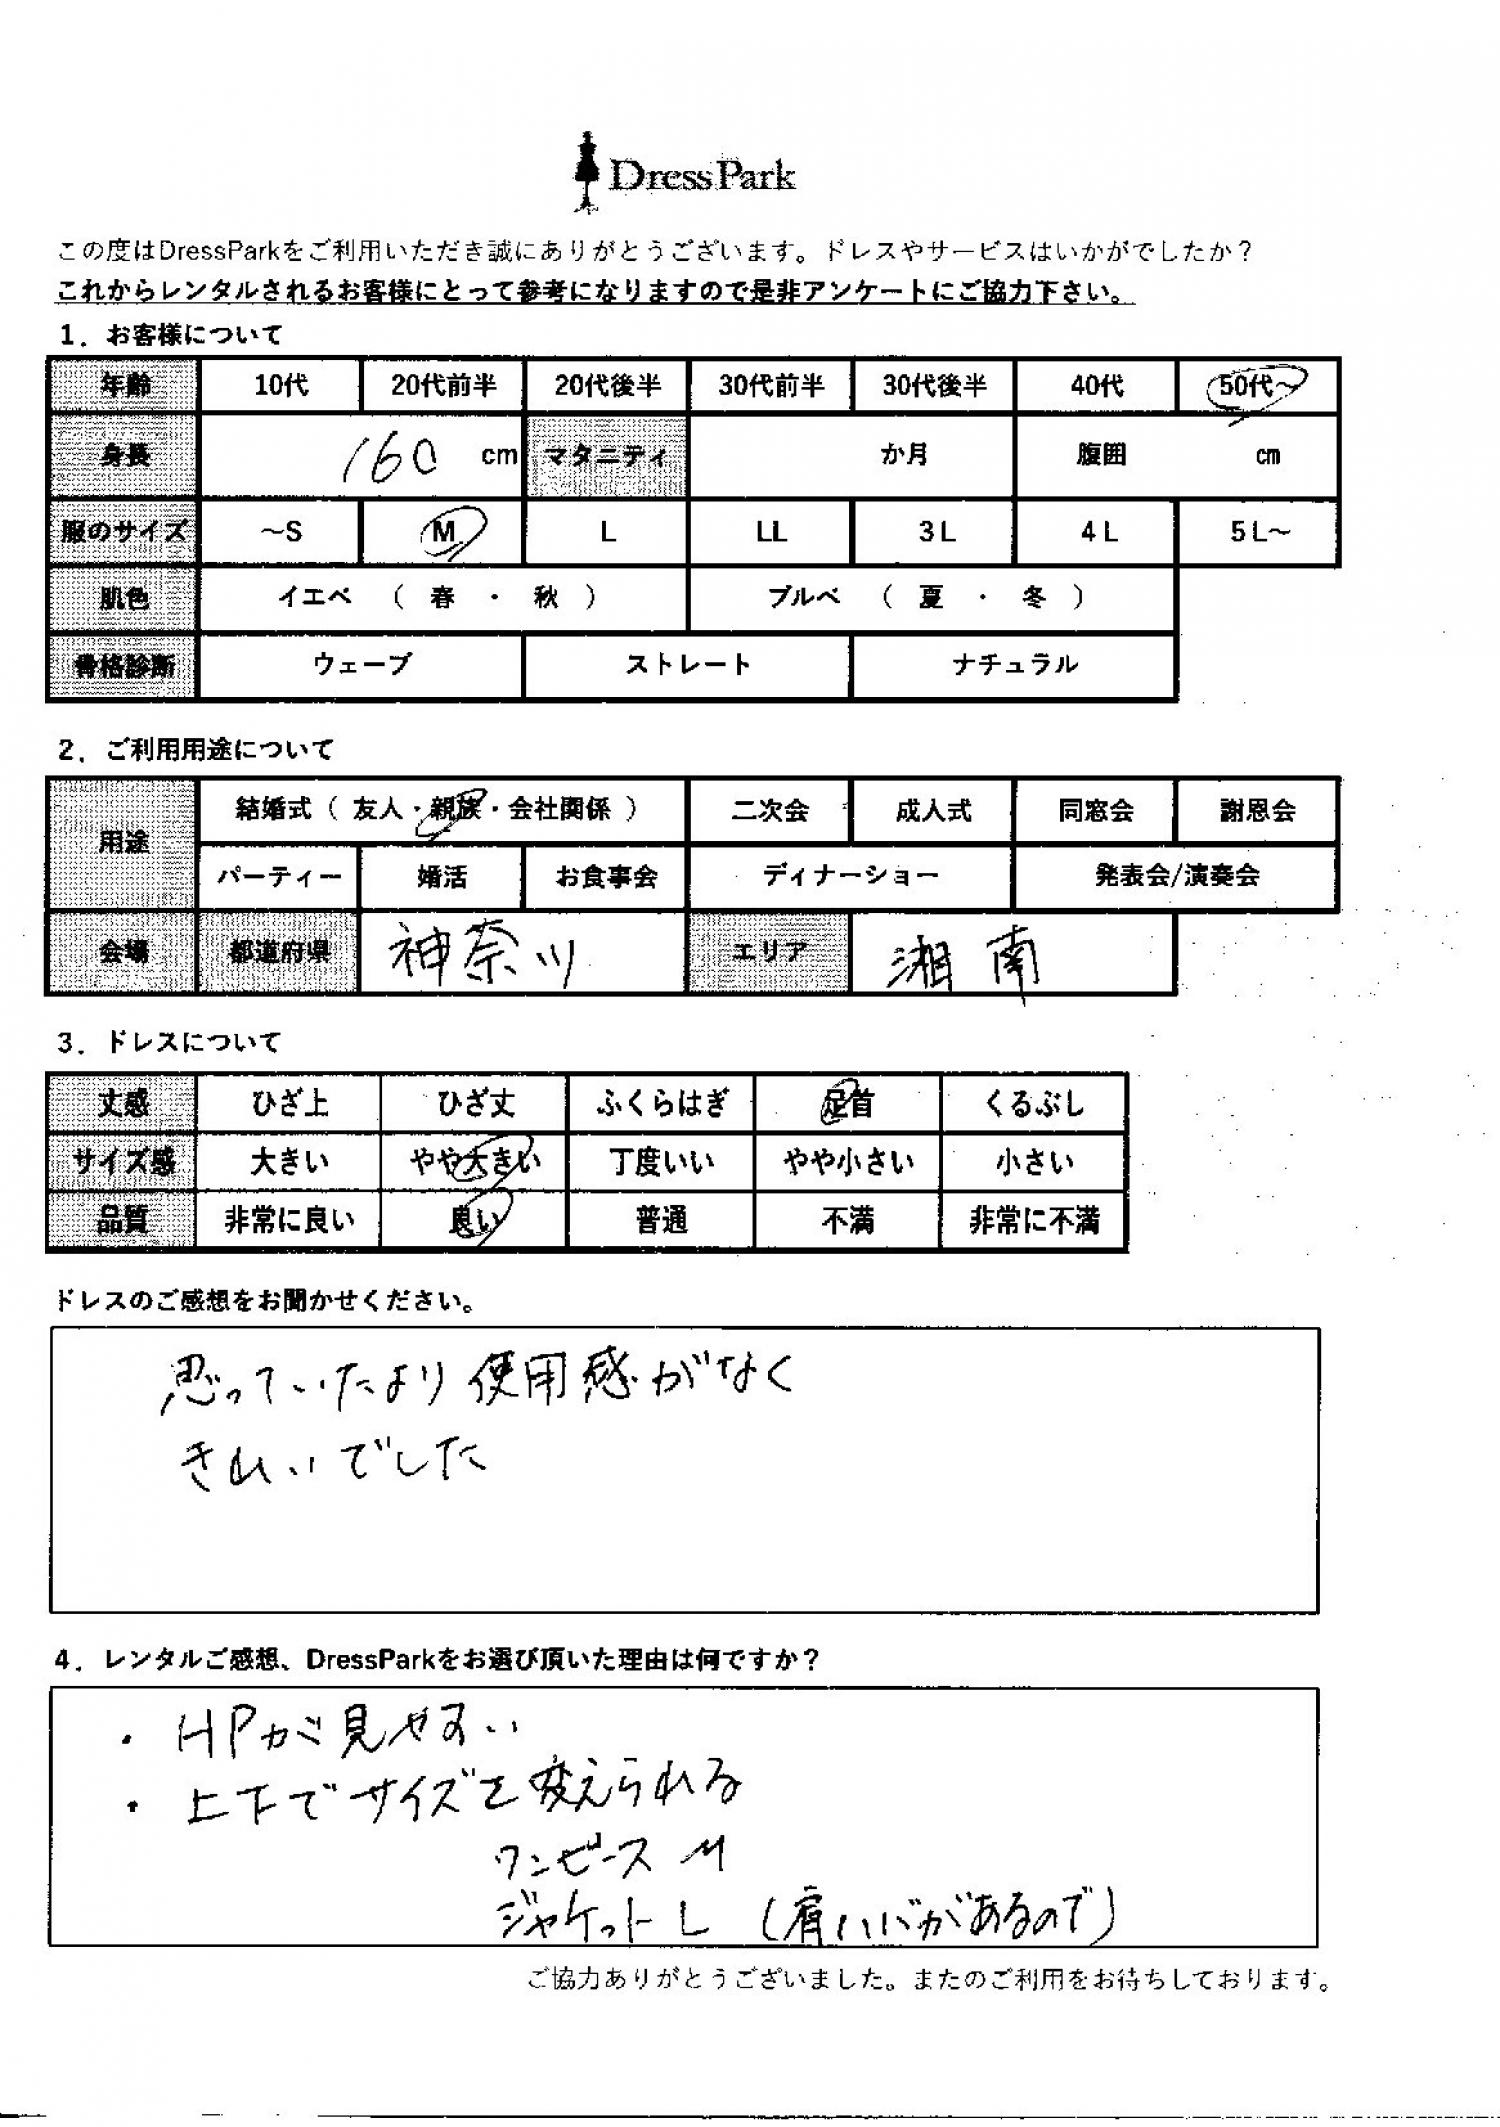 DressPark
この度はDressParkをご利用いただき誠にありがとうございます。ドレスやサービスはいかがでしたか？
これからレンタルされるお客様にとって参考になりますので是非アンケートにご協力下さい。
1．お客様について
年齢 10代 20代前半 20代後半 30代前半 30代後半 40代 50代～
身長 160 cm マタニティ か月 腹囲 cm
服のサイズ ～S M L LL 3L 4L 5L～
肌色 イエベ （ 春 ・ 秋 ） ブルベ （ 夏 ・ 冬 ）
骨格診断 ウェーブ ストレート ナチュラル
2．ご利用用途について
用途 結婚式（ 友人・親族・会社関係 ） 二次会 成人式 同窓会 謝恩会
パーティー 婚活 お食事会 ディナーショー 発表会/演奏会
会場 都道府県 神奈川 エリア 湘南
3．ドレスについて
丈感 ひざ上 ひざ丈 ふくらはぎ 足首 くるぶし
サイズ感 大きい やや大きい 丁度いい やや小さい 小さい
品質 非常に良い 良い 普通 不満 非常に不満
ドレスのご感想をお聞かせください。
思っていたより使用感がなく
きれいでした
4．レンタルご感想、DressParkをお選び頂いた理由は何ですか？
・HPが見やすい
・上下でサイズを変えられる
ワンピース M
ジャケット L （肩ハバがあるので）
ご協力ありがとうございました。またのご利用をお待ちしております。